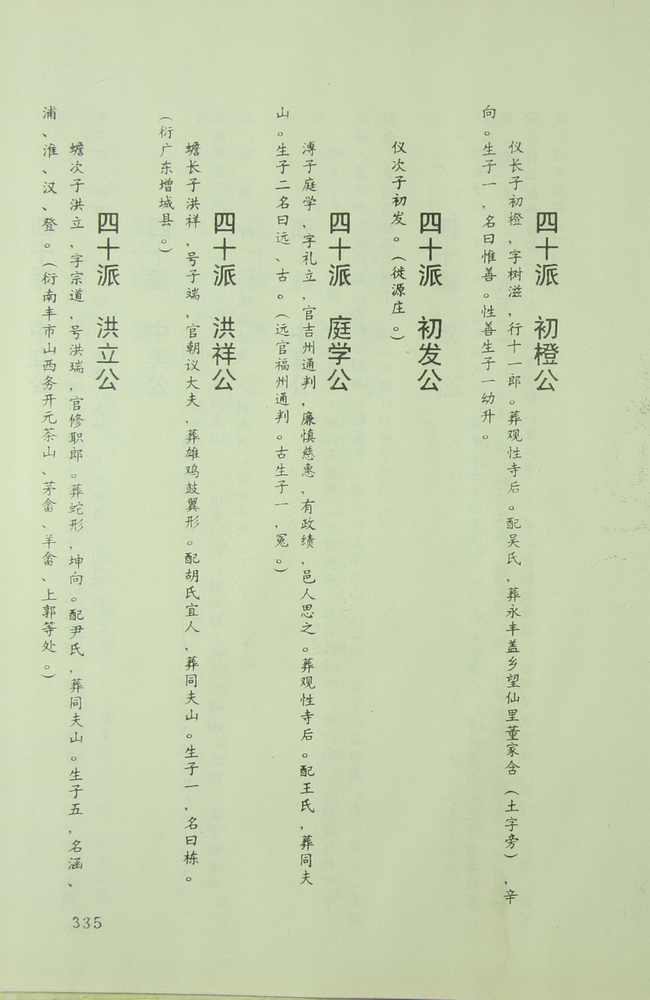 四十派 初橙公
仪长子初橙,字树滋,行十一郎。葬观性寺后。配吴氏,葬永丰盖乡望仙里董家含(土字旁),辛
向。生子一,名曰惟善。性善生子一幼升。
四十派 初发公
仪次子初发。(徙源庄。)
四十派 庭学公
溥子庭学,字礼立,官吉州通判,廉慎慈惠,有政绩,邑人思之。葬观性寺后。配王氏,葬同夫
山。生子二名曰远、古。(远官福州通判。古生子一,冕。)
四十派 洪祥公
蟾长子洪祥,号子端,官朝议大夫,葬雄鸡鼓翼形。配胡氏宜人,葬同夫山。生子一,名曰栋。
(衍广东增城县。)
四十派 洪立公
蟾次子洪立,字宗道,号洪瑞,官修职郎。葬蛇形,坤向。配尹氏,葬同夫山。生子五,名涵、
浦、淮、汉、登。(衍南丰市山西务开元茶山、茅畲、羊畲、上郭等处。)
335